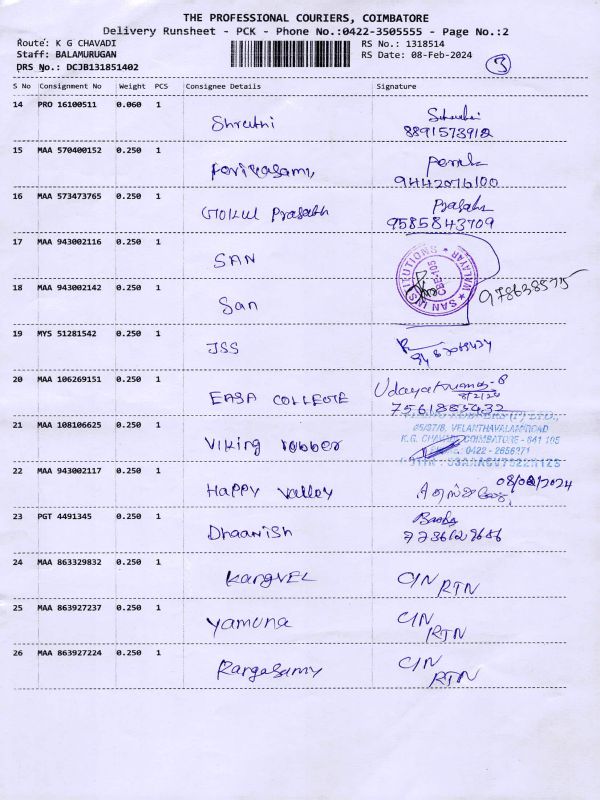 THE PROFESSIONAL COURIERS, COIMBATORE
Delivery Runsheet - PCK - Phone No.:0422-3505555 - Page No.:2
Route: K G CHAVADI
Staff: BALAMURUGAN
DRS No.: DCJB131851402
RS No.: 1318514
RS Date: 08-Feb-2024
3
S No Consignment No Weight PCS Consignee Details Signature
14 PRO 16100511 0.060 1 Shruthi
8891573912
15 MAA 570400152 0.250 1
9442076100
16 MAA 573473765 0.250 1 Gokul Prasath
9585843709
17 MAA 943002116 0.250 1 SAN
SAN INSTITUTIONS
CBE-105
18 MAA 943002142 0.250 1 San
19 MYS 51281542 0.250 1 JSS
20 MAA 106269151 0.250 1 EASA COLLEGE
7561885432
21 MAA 108106625 0.250 1 Viking rubber
VELANTHAVALAM ROAD
K.G. CHAVADI, COIMBATORE - 641 105
0422 - 2656371
22 MAA 943002117 0.250 1 HAPPY Valley 08/02/2024
23 PGT 4491345 0.250 1 Dhaanish
24 MAA 863329832 0.250 1 KargVEL C/N
RTN
25 MAA 863927237 0.250 1 Yamuna C/N
RTN
26 MAA 863927224 0.250 1 Rangasamy C/N
RTN